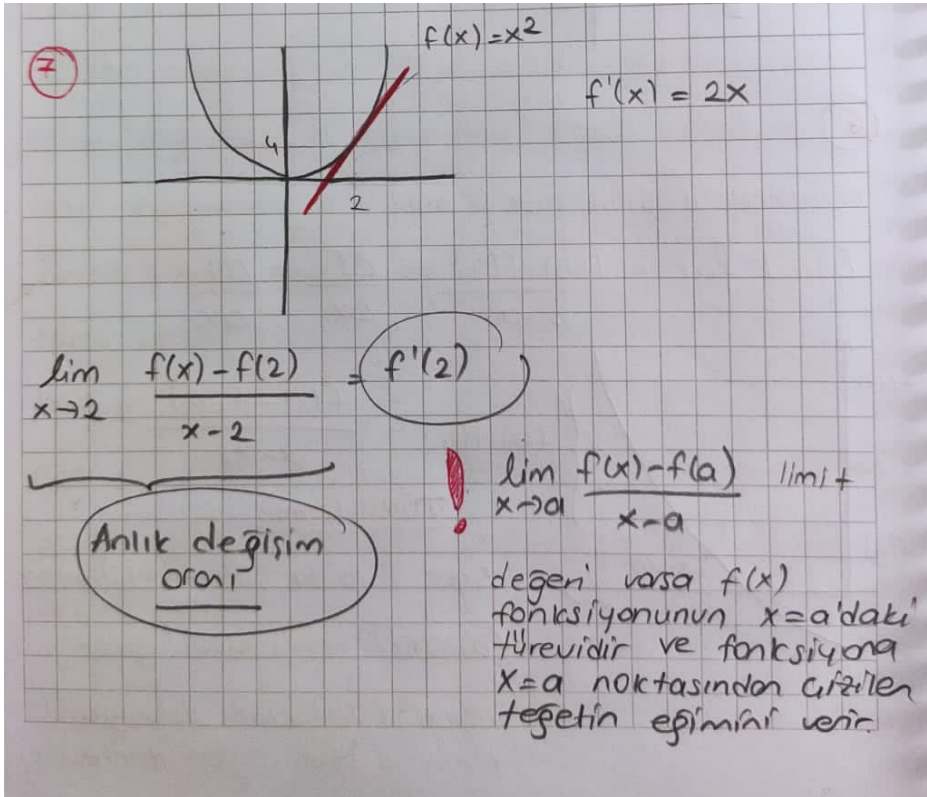 7
f(x)=x²
f'(x) = 2x
4
2
lim x→2 f(x)-f(2) / x-2 = f'(2)
Anlık değişim
oranı
! lim x→a f(x)-f(a) / x-a limit
değeri varsa f(x)
fonksiyonunun x=a'daki
türevidir ve fonksiyona
x=a noktasından çizilen
teğetin eğimini verir.